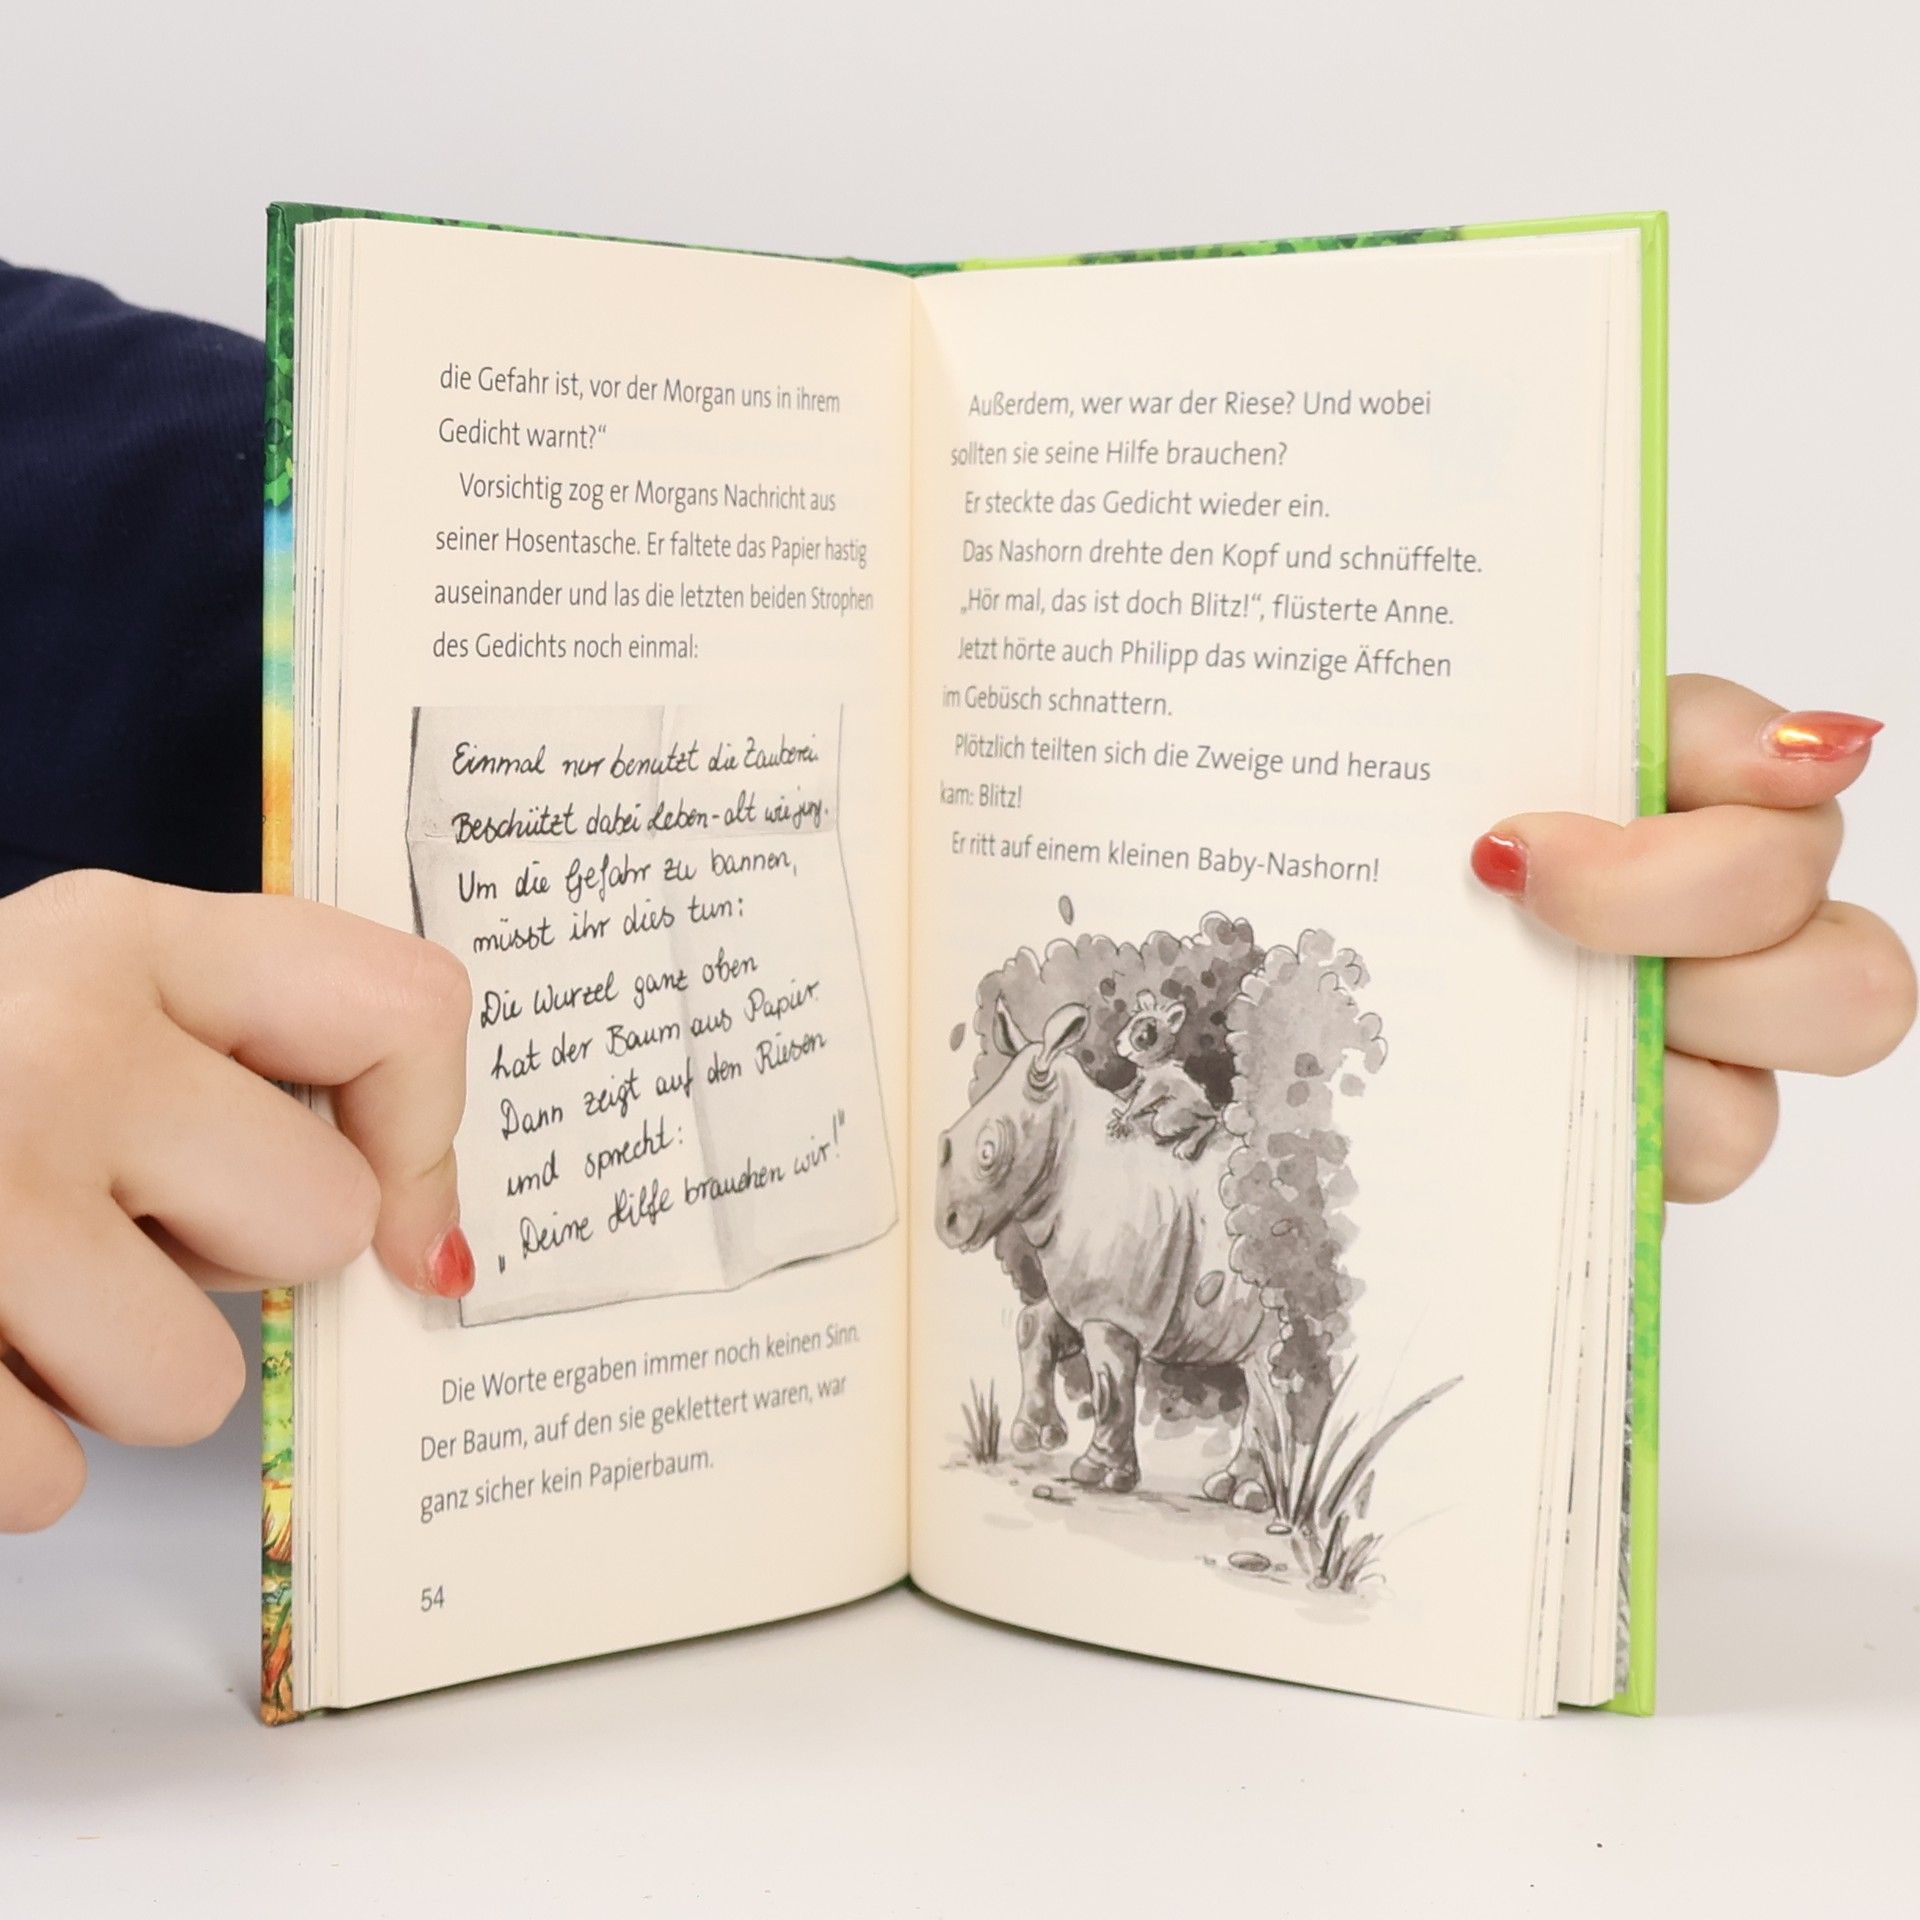 die Gefahr ist, vor der Morgan uns in ihrem
Gedicht warnt?“
Vorsichtig zog er Morgans Nachricht aus
seiner Hosentasche. Er faltete das Papier hastig
auseinander und las die letzten beiden Strophen
des Gedichts noch einmal:
Einmal nur benutzt die Zauberei.
Beschützt dabei Leben-alt wie jung.
Um die Gefahr zu bannen,
müsst ihr dies tun:
Die Wurzel ganz oben
hat der Baum aus Papier.
Dann zeigt auf den Riesen
und sprecht:
„Deine Hilfe brauchen wir!“
Die Worte ergaben immer noch keinen Sinn.
Der Baum, auf den sie geklettert waren, war
ganz sicher kein Papierbaum.
54
Außerdem, wer war der Riese? Und wobei
sollten sie seine Hilfe brauchen?
Er steckte das Gedicht wieder ein.
Das Nashorn drehte den Kopf und schnüffelte.
„Hör mal, das ist doch Blitz!“, flüsterte Anne.
Jetzt hörte auch Philipp das winzige Äffchen
im Gebüsch schnattern.
Plötzlich teilten sich die Zweige und heraus
kam: Blitz!
Er ritt auf einem kleinen Baby-Nashorn!